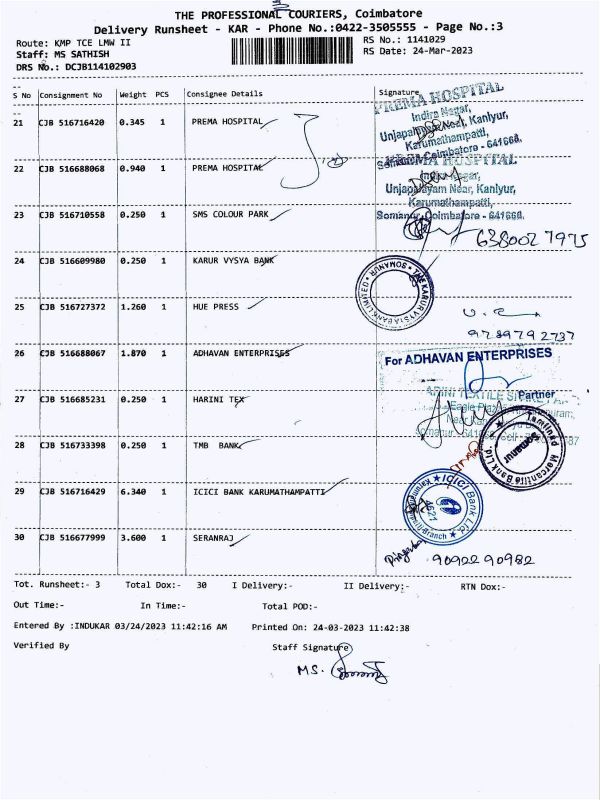 THE PROFESSIONAL COURIERS, Coimbatore
Delivery Runsheet - KAR - Phone No.:0422-3505555 - Page No.:3
Route: KMP TCE LMW II
RS No.: 1141029
Staff: MS SATHISH
RS Date: 24-Mar-2023
DRS No.: DCJB114102903
S No Consignment No Weight PCS Consignee Details Signature
21 CJB 516716420 0.345 1 PREMA HOSPITAL
PREMA HOSPITAL
Indira Nagar,
Unjapalayam Near, Kaniyur,
Karumathampatti,
Somanur, Coimbatore - 641668.
22 CJB 516688068 0.940 1 PREMA HOSPITAL
PREMA HOSPITAL
Indira Nagar,
Unjapalayam Near, Kaniyur,
Karumathampatti,
Somanur, Coimbatore - 641668.
23 CJB 516710558 0.250 1 SMS COLOUR PARK
6380027975
24 CJB 516609980 0.250 1 KARUR VYSYA BANK
THE KARUR VYSYA BANK LIMITED * SOMANUR *
25 CJB 516727372 1.260 1 HUE PRESS
9789792737
26 CJB 516688067 1.870 1 ADHAVAN ENTERPRISES
For ADHAVAN ENTERPRISES
Partner
27 CJB 516685231 0.250 1 HARINI TEX
28 CJB 516733398 0.250 1 TMB BANK
Tamilnad Mercantile Bank Ltd.
Somanur
29 CJB 516716429 6.340 1 ICICI BANK KARUMATHAMPATTI
ICICI Bank Ltd.
4621
Branch
30 CJB 516677999 3.600 1 SERANRAJ
9092290982
Tot. Runsheet:- 3 Total Dox:- 30 I Delivery:- II Delivery:- RTN Dox:-
Out Time:- In Time:- Total POD:-
Entered By :INDUKAR 03/24/2023 11:42:16 AM Printed On: 24-03-2023 11:42:38
Verified By Staff Signature
MS.